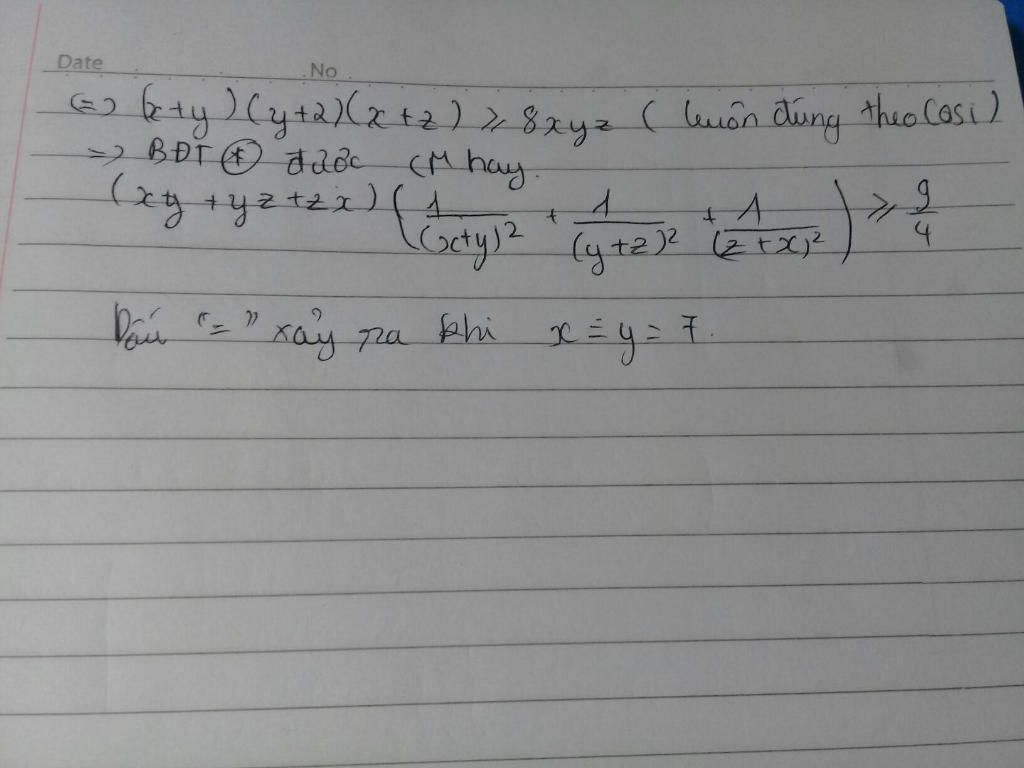 Date No
<=> (x+y)(y+2)(x+z) ≥ 8xyz ( luôn đúng theo Cosi )
=> BĐT (*) được CM hay.
(xy + yz + zx) ( 1/(x+y)² + 1/(y+z)² + 1/(z+x)² ) ≥ 9/4
Dấu "=" xảy ra khi x = y = 7.